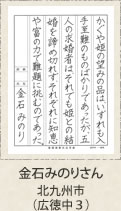 かぐや姫が望みの品は、いずれも入
手至難のものばかりであったが、五
人の求婚者はそれでも姫との結
婚を諦め切れず、それぞれに知恵
や富の力で難題に挑むのであった。
金石みのり
金石みのりさん
北九州市
(広徳中3)